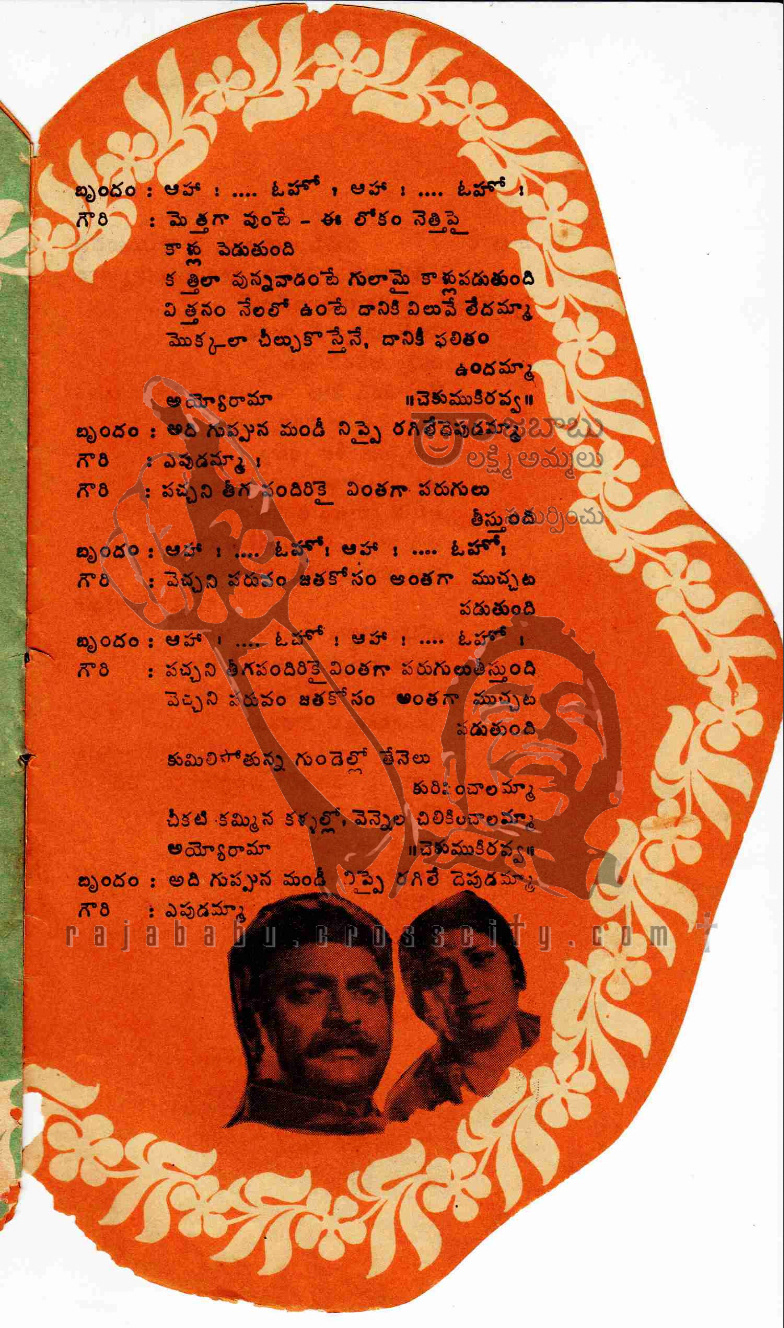 బృందం : ఆహా : .... ఓహో : ఆహా : .... ఓహో :
గౌరి : మెత్తగా వుంటే - ఈ లోకం నెత్తిపై
కాళ్లు పెడుతుంది
కత్తిలా వున్నవాడంటే గులామై కాళ్లుపడుతుంది
విత్తనం నేలలో ఉంటే దానికి విలువే లేదమ్మా
మొక్కలా చీల్చుకొస్తేనే, దానికీ ఫలితం
ఉందమ్మా
అయ్యోరామా ॥చెకుముకిరవ్వ॥
బృందం : అది గుప్పున మండీ నిప్పై రగిలేదెపుడమ్మా
గౌరి : ఎపుడమ్మా :
గౌరి : పచ్చని తీగ పందిరికై వింతగా పరుగులు
తీస్తుంది
బృందం : ఆహా : .... ఓహో: ఆహా : .... ఓహో:
గౌరి : వెచ్చని పరువం జతకోసం అంతగా ముచ్చట
పడుతుంది
బృందం : ఆహా : .... ఓహో : ఆహా : .... ఓహో :
గౌరి : పచ్చని తీగపందిరికై వింతగా పరుగులుతీస్తుంది
వెచ్చని పరువం జతకోసం అంతగా ముచ్చట
పడుతుంది
కుమిలిపోతున్న గుండెల్లో తేనెలు
కురిపించాలమ్మా
చీకటి కమ్మిన కళ్ళల్లో, వెన్నెల చిలికించాలమ్మా
అయ్యోరామా ॥చెకుముకిరవ్వ॥
బృందం : అది గుప్పున మండీ నిప్పై రగిలే దెపుడమ్మా
గౌరి : ఎపుడమ్మా
లక్ష్మిఅమ్మలు
rajababu.crosscity.com